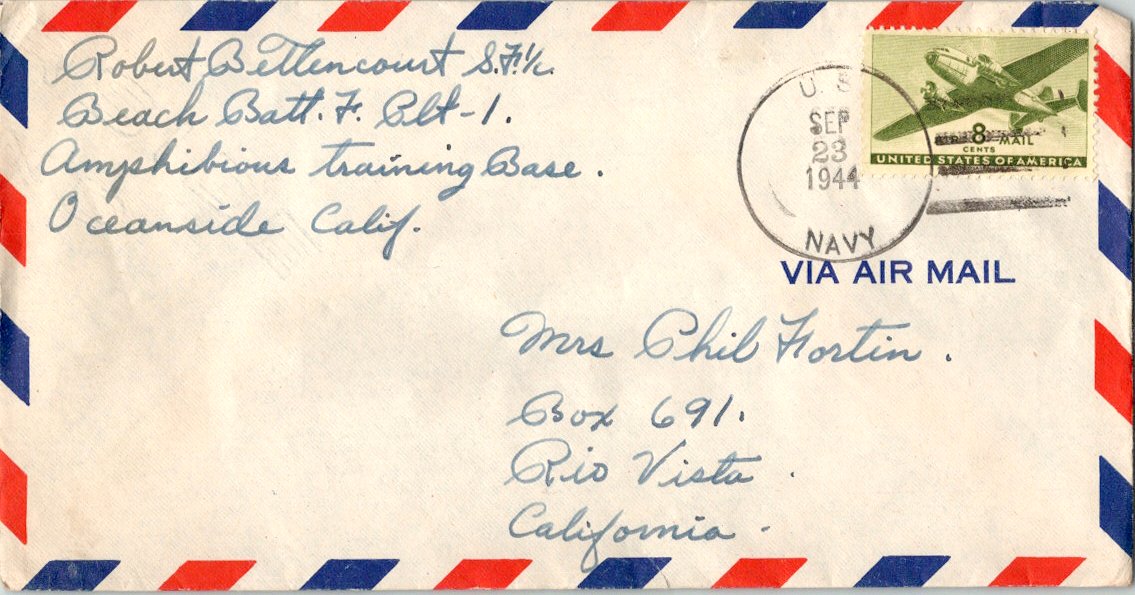 Robert Bettencourt S.F.1/c.
Beach Batt. F. Plt-1.
Amphibious training Base.
Oceanside Calif.
U. S.
SEP
23
1944
NAVY
8
CENTS
AIR MAIL
UNITED STATES OF AMERICA
VIA AIR MAIL
Mrs Phil Fortin.
Box 691.
Rio Vista.
California.